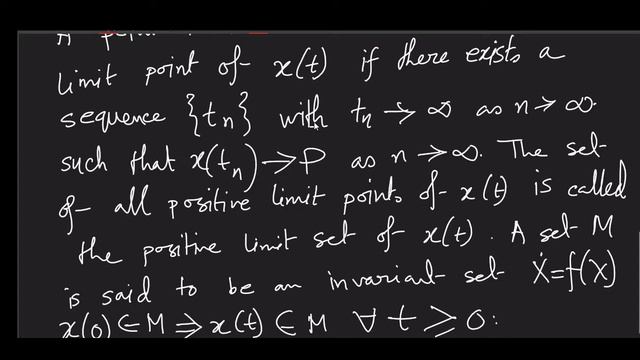 limit point of x(t) if there exists a
sequence {tn} with tn → ∞ as n → ∞
such that x(tn) → P as n → ∞. The set
of all positive limit points of x(t) is called
the positive limit set of x(t). A set M
is said to be an invariant set Ẋ = f(X)
x(0) ∈ M ⇒ x(t) ∈ M ∀ t ≥ 0.